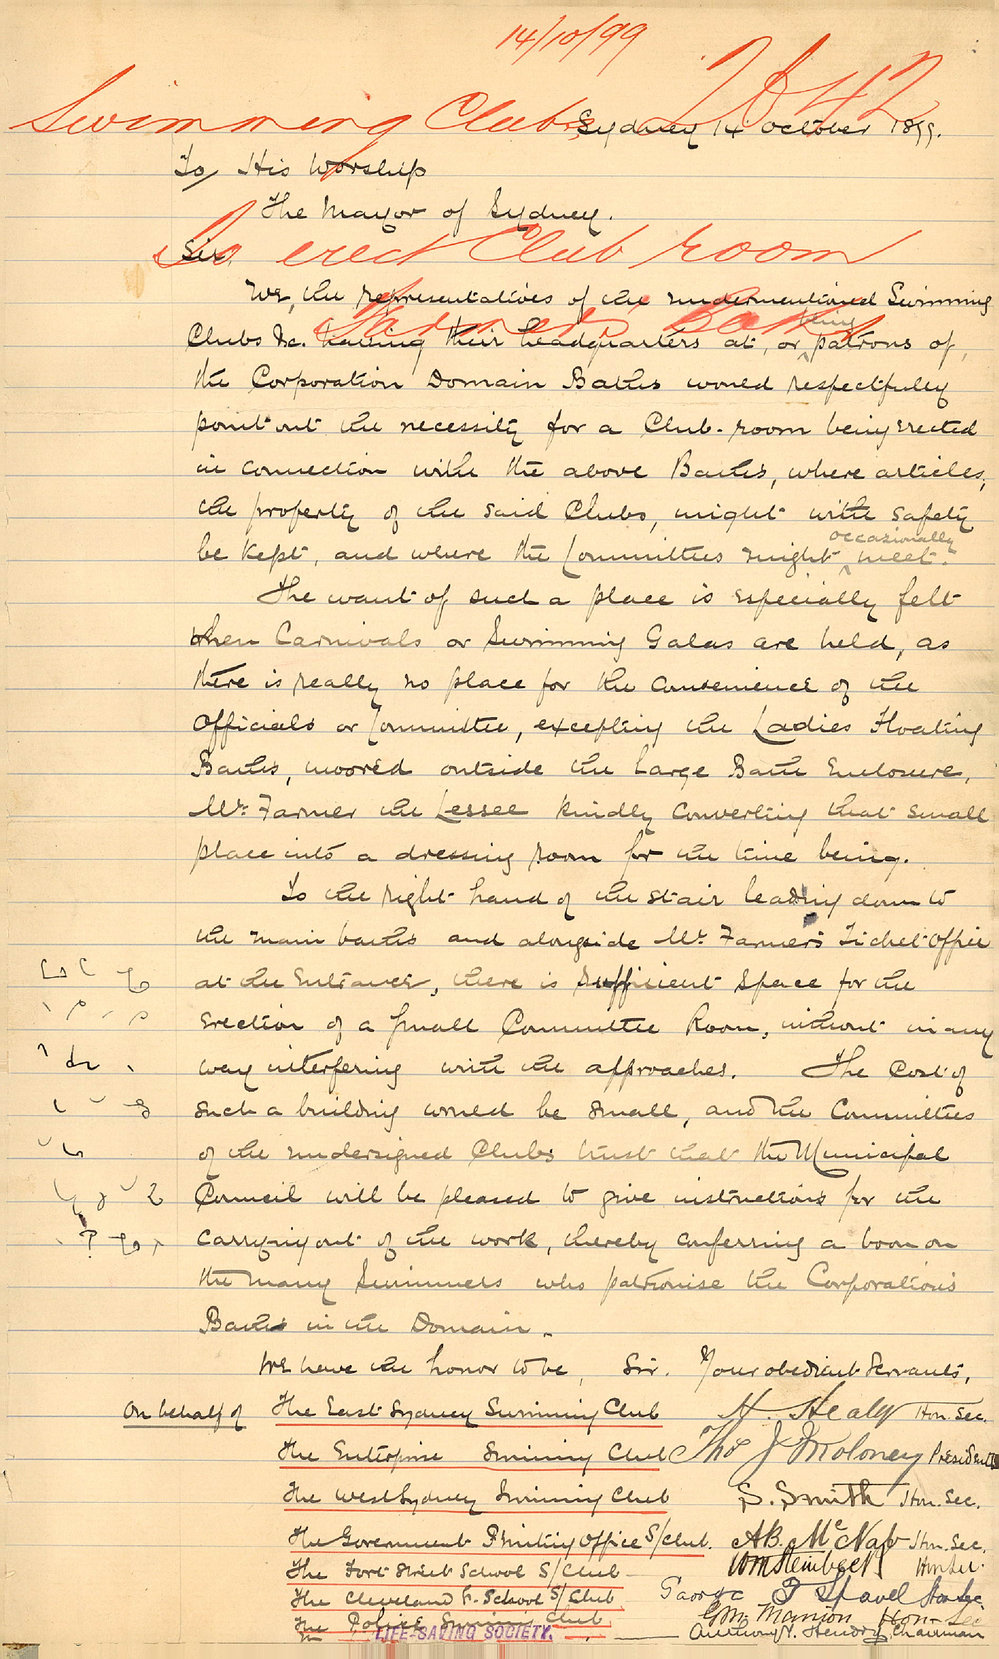 14/10/99
Swimming Clubs 2842
Sydney 14 October 1899.
To His Worship
The Mayor of Sydney.
Sir
To erect Club room
We, the representatives of the undermentioned Swimming
Farmers Baths
Clubs &c. having their headquarters at, or being patrons of,
the Corporation Domain Baths would respectfully
point out the necessity for a Club-room being erected
in connection with the above Baths, where articles,
the property of the said Clubs, might with safety
be kept, and where the Committees might occasionally meet.
The want of such a place is especially felt
when Carnivals or Swimming Galas are held, as
there is really no place for the convenience of the
Officials or Committee, excepting the Ladies Floating
Baths, moored outside the large Bath Enclosure,
Mr. Farmer the Lessee kindly converting that small
place into a dressing room for the time being.
To the right hand of the stair leading down to
the main baths and alongside Mr. Farmer's Ticket Office
at the Entrance, there is sufficient space for the
erection of a small Committee Room, without in any
way interfering with the approaches. The cost of
such a building would be small, and the Committees
of the undersigned Clubs trust that the Municipal
Council will be pleased to give instructions for the
carrying out of the work, thereby conferring a boon on
the many Swimmers who patronise the Corporation's
Baths in the Domain.
We have the honor to be, Sir, Your obedient Servants,
On behalf of The East Sydney Swimming Club H. Healy Hon. Sec.
The Enterprise Swimming Club Thos J Moloney President
The West Sydney Swimming Club S. Smith Hon. Sec.
The Government Printing Office S/Club. A.B. McNab Hon. Sec.
The Fort Street School S/Club Hon Sec.
The Cleveland P. School S/Club George T Spavel Hon Sec
The Police Swimming Club Manion Hon Sec
LIFE-SAVING SOCIETY. Hendry, Chairman